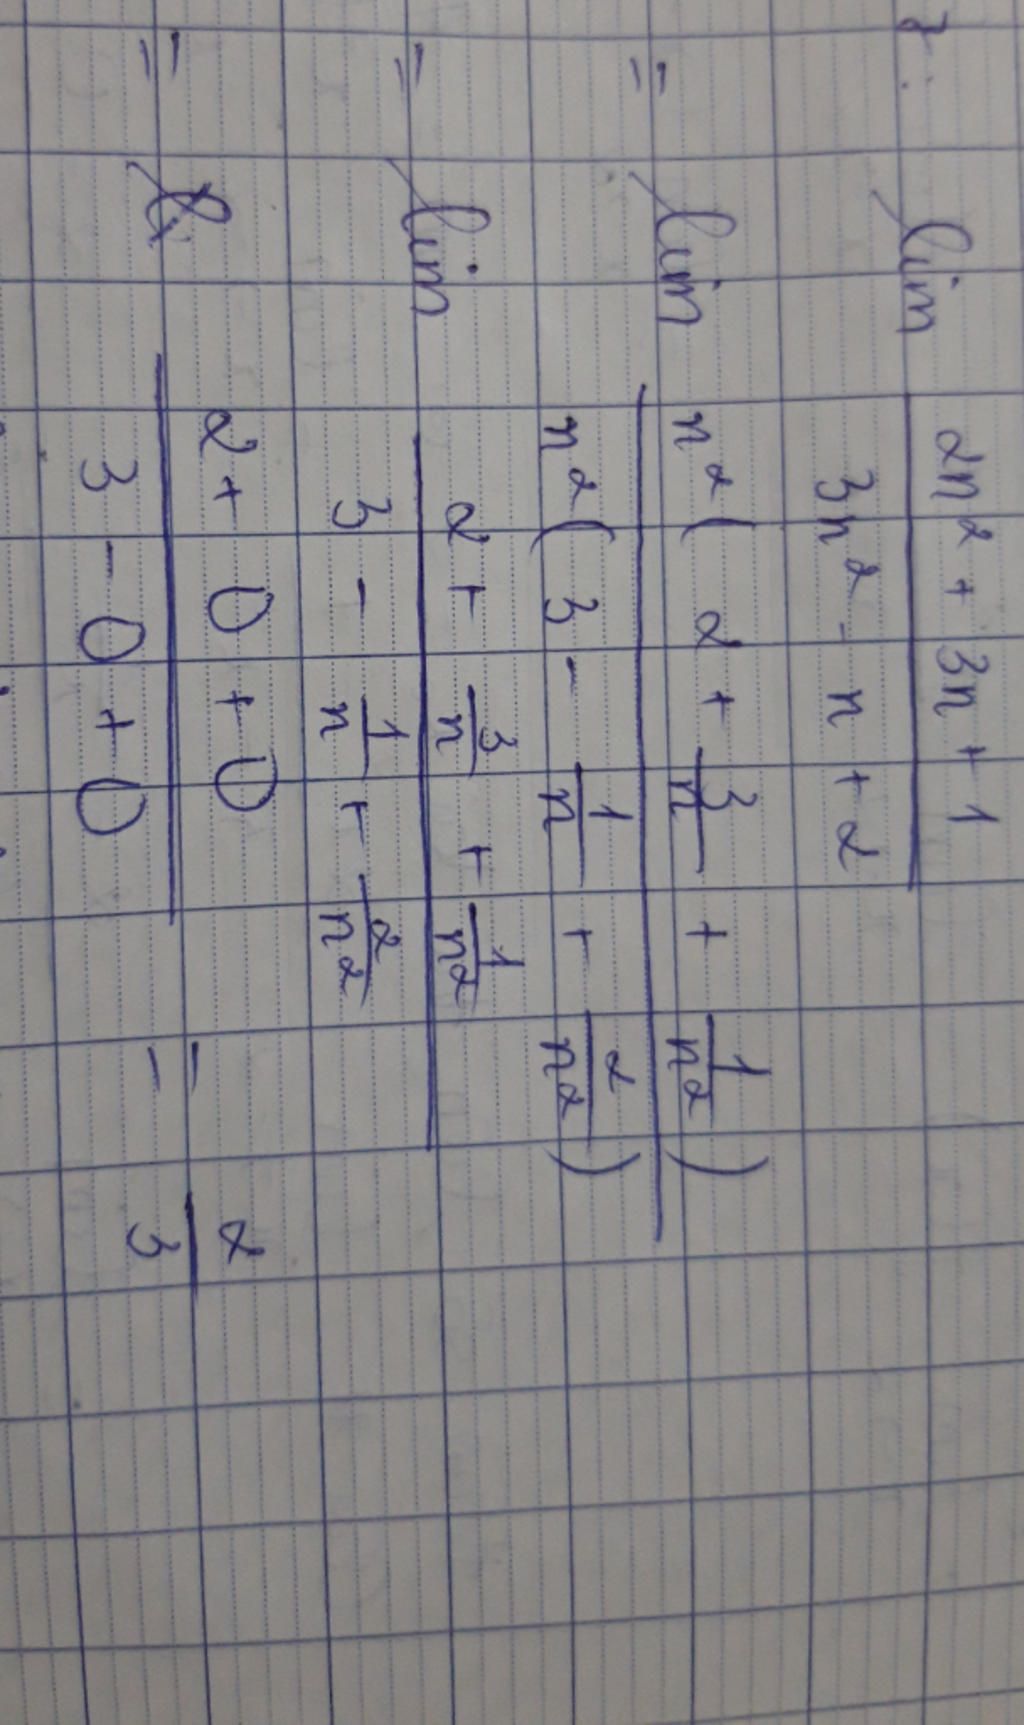 lim (2n² + 3n + 1) / (3n² - n + 2)
= lim n²(2 + 3/n + 1/n²) / n²(3 - 1/n + 2/n²)
= lim (2 + 3/n + 1/n²) / (3 - 1/n + 2/n²)
= (2 + 0 + 0) / (3 - 0 + 0) = 2/3